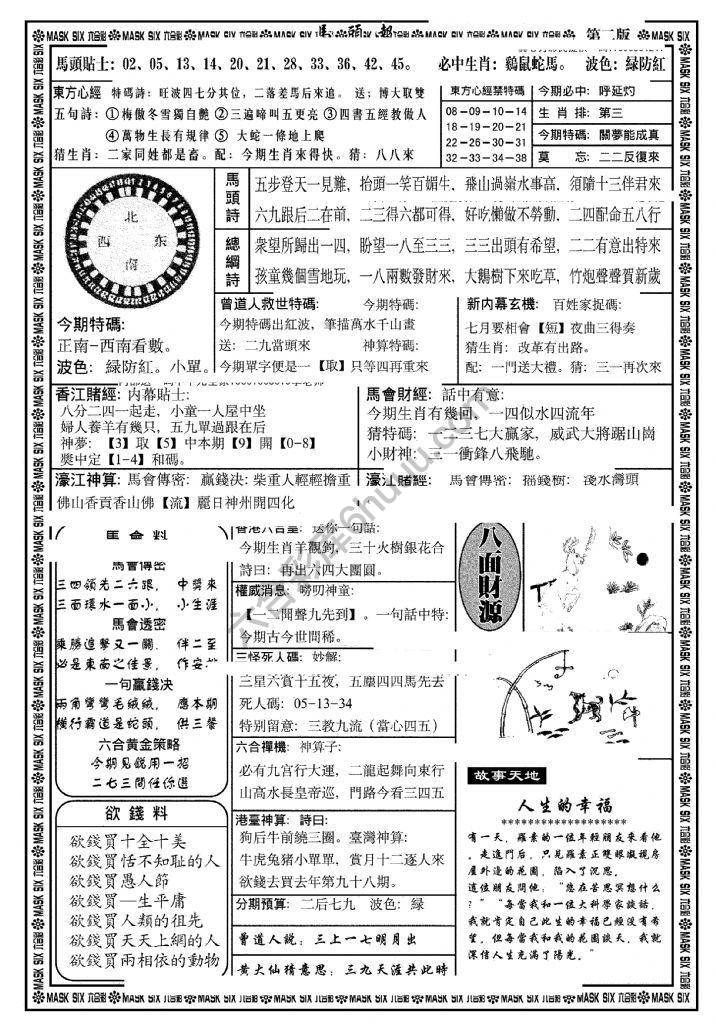 馬頭報
第二版
馬頭貼士：02、05、13、14、20、21、28、33、36、42、45。 必中生肖：鷄鼠蛇馬。 波色：緑防紅
東方心經 特碼詩：旺波四七分其位，二落差馬后來追。送：博大取雙
五句詩：①梅傲冬雪獨自艷 ②三遍啼叫五更亮 ③四書五經教做人
④萬物生長有規律 ⑤ 大蛇一條地上爬
猜生肖：二家同姓都是畜。配：今期生肖來得快。猜：八八來
東方心經禁特碼
08－09－10－14
18－19－20－21
22－26－30－31
32－33－34－38
今期必中：呼延灼
生 肖 排：第三
今期特碼：關夢能成真
莫 忘：二二反復來
北
西 东
南
今期特碼:
正南－西南看數。
波色：緑防紅。小單。
馬頭詩
五步登天一見難，抬頭一笑百媚生，飛山過嶺水事高，須隨十三伴君來
六九跟后二在前，二三得六都可得，好吃懶做不勞動，二四配命五八行
總綱詩
衆望所歸出一四，盼望一八至三三，三三出頭有希望，二二有意出特來
孩童幾個雪地玩，一八兩數發財來，大鵝樹下來吃草，竹炮聲聲賀新歲
曾道人救世特碼： 今期特碼:
今期特碼出紅波，筆描萬水千山畫
送：二九當頭來 神算特碼:
今期單字便是一【取】只等四再重來
新内幕玄機：百姓家捉碼:
七月要相會【短】夜曲三得奏
猜生肖：改革有出路。
配：一門送大禮。猜：三一再次來
香江賭經：内幕貼士:
八分二四一起走，小童一人屋中坐
婦人養羊有幾只，五九單過跟在后
神夢：【3】取【5】中本期【9】開【0-8】
獎中定【1-4】和碼。
馬會財經：話中有意:
今期生肖有幾回，一四似水四流年
猜特碼：一三七大贏家，威武大將踞山崗
小財神：三一衝鋒八飛馳。
濠江神算：馬會傳密：贏錢决：柴重人輕輕擔重
佛山香貢香山佛【流】麗日神州開四化
濠江賭經：馬曾傳密：摇錢樹：淺水灣頭
馬會料
馬會傳密
三四領先二六跟， 中獎來
三面環水一面小， 小生涯
馬會透密
乘勝追擊又一關， 伴二至
必是東南之佳景，
一句贏錢决
兩角彎彎毛絨絨， 應本期
橫行霸道是蛇頭， 供三餐
六合黄金策略
今期見鋭用一招
二七三間任你選
欲錢料
欲錢買十全十美
欲錢買恬不知耻的人
欲錢買愚人節
欲錢買一生平庸
欲錢買人類的祖先
欲錢買天天上網的人
欲錢買兩相依的動物
香港六合皇：送你一句話:
今期生肖羊觀鈎，三十火樹銀花合
詩曰：再出六四大團圓。
權威消息：嘮叨神童:
【一二聞聲九先到】。一句話中特:
今期古今世間稀。
三怪死人碼：妙解:
三星六賞十五夜，五塵四四馬先去
死人碼：05-13-34
特别留意：三教九流（當心四五）
六合禪機：神算子:
必有九宫行大運，二龍起舞向東行
山高水長皇帝巡，門路今看三四五
港臺神算：詩曰:
狗后牛前繞三圈。臺灣神算:
牛虎兔猪小單單，賞月十二逐人來
欲錢去買去年第九十八期。
分期預算：二后七九 波色：緑
曾道人説：三上一七明月出
黄大仙猜意思：三九天涯共此時
八面財源
故事天地
人生的幸福
********************
有一天，羅素的一位年輕朋友來看他
。走進門后，只見羅素正雙眼凝視房
屋外邊的花園，陷入了沉思。
這位朋友問他："您在苦思冥想什么
？" "每當我和一位大科學家談話，
我就肯定自己此生的幸福已經没有希
望。但每當我和我的花園談天，我就
深信人生充滿了陽光。"